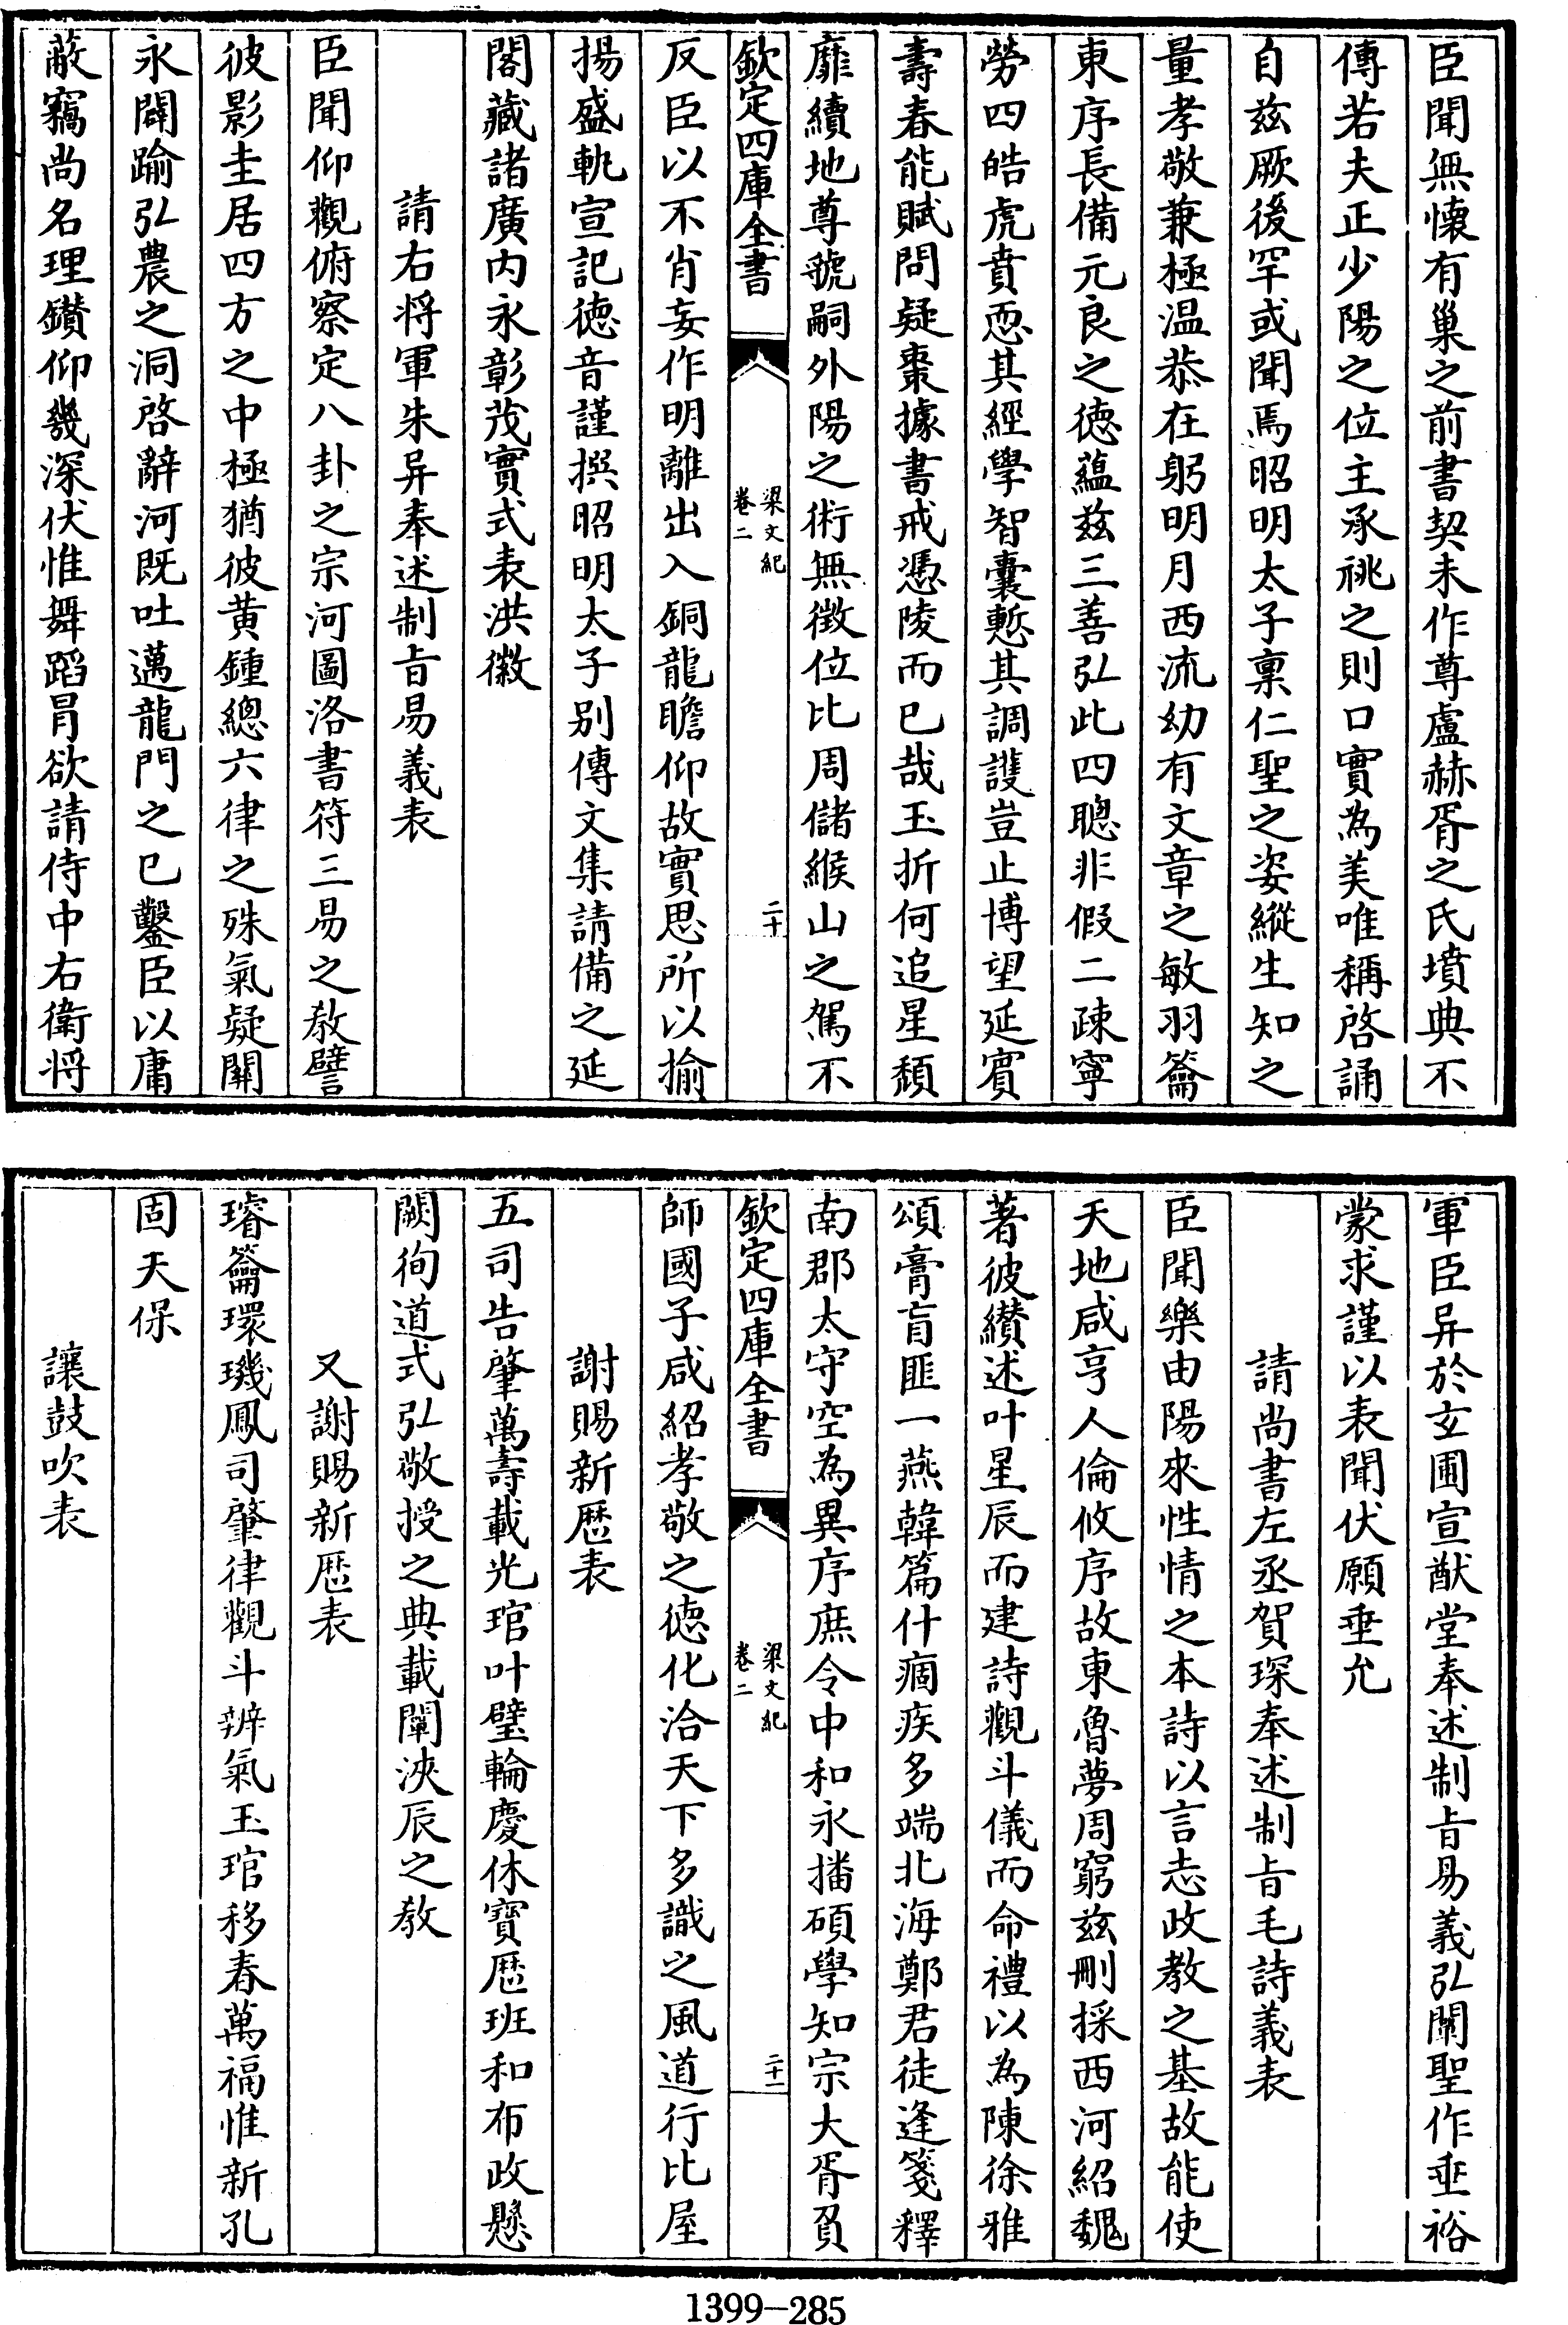 臣聞無懐有巢之前書契未作尊盧赫胥之氏墳典不
傳若夫正少陽之位主承祧之則口實為美唯稱啓誦
自兹厥後罕或聞焉昭明太子稟仁聖之姿縱生知之
量孝敬兼極温恭在躬明月西流幼有文章之敏羽籥
東序長備元良之徳蘊兹三善弘此四聰非假二疎寧
勞四皓虎賁恧其經學智囊慙其調護豈止博望延賓
壽春能賦問疑棗據書戒憑陵而已哉玉折何追星頽
靡續地尊號嗣外陽之術無徴位比周儲緱山之駕不
欽定四庫全書
梁文紀
卷二
二十
反臣以不肖妄作明離出入銅龍瞻仰故實思所以揄
揚盛軌宣記徳音謹撰昭明太子别傳文集請備之延
閣藏諸廣内永彰茂實式表洪徽
請右将軍朱异奉述制㫖易義表
臣聞仰觀俯察定八卦之宗河圖洛書符三易之教譬
彼影圭居四方之中極猶彼黄鍾總六律之殊氣疑關
永闢踰弘農之洞啓辭河既吐邁龍門之已鑿臣以庸
蔽竊尚名理鑚仰幾深伏惟舞蹈冐欲請侍中右衛将
軍臣异於𤣥圃宣猷堂奉述制㫖易義弘闡聖作垂裕
蒙求謹以表聞伏願垂允
請尚書左丞賀琛奉述制㫖毛詩義表
臣聞樂由陽來性情之本詩以言志政教之基故能使
天地咸亨人倫攸序故東魯夢周窮兹刪採西河紹魏
著彼纘述叶星辰而建詩觀斗儀而命禮以為陳徐雅
頌膏肓匪一燕韓篇什痼疾多端北海鄭君徒逢箋釋
南郡太守空為異序庶令中和永播碩學知宗大胥負
欽定四庫全書
梁文紀
卷二
二十一
師國子咸紹孝敬之徳化洽天下多識之風道行比屋
謝賜新厯表
五司告肇萬壽載光琯叶璧輪慶休寶厯班和布政懸
闕徇道式弘敬授之典載闡浹辰之教
又謝賜新厯表
璿籥環璣鳳司肇律觀斗辨氣玉琯移春萬福惟新孔
固天保
讓鼓吹表
1399-285